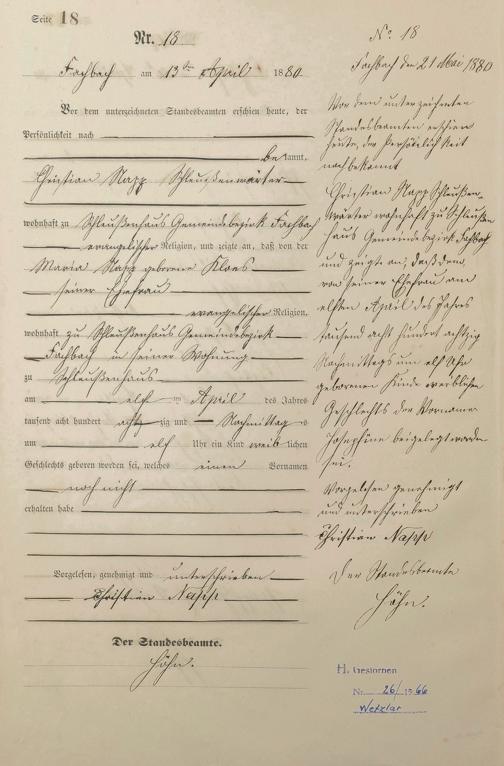 Seite 18
Nr. 18
Fachbach am 13ten April 1880
Vor dem unterzeichneten Standesbeamten erschien heute, der
Persönlichkeit nach
bekannt,
Christian Napp Schleußenwärter
wohnhaft zu Schleußenhaus Gemeindebezirk Fachbach
evangelischer Religion, und zeigte an, daß von der
Maria Napp geborene Kloes
seiner Ehefrau
evangelischer Religion,
wohnhaft zu Schleußenhaus Gemeindebezirk
Fachbach in seiner Wohnung
zu Schleußenhaus
am elf ten April des Jahres
tausend acht hundert achtzig und Nachmittags
um elf Uhr ein Kind weiblichen
Geschlechts geboren worden sei, welches einen Vornamen
noch nicht
erhalten habe
Vorgelesen, genehmigt und unterschrieben
Christian Napp
Der Standesbeamte.
Höhn.
No 18
Fachbach den 21 Mai 1880
Vor dem unterzeichneten
Standesbeamten erschien
heute, der Persönlichkeit
nach bekannt
Christian Napp Schleußen
wärter wohnhaft zu Schleußen
haus Gemeindebezirk Fachbach
und zeigte an, daß dem
von seiner Ehefrau am
elften April des Jahres
tausend acht hundert achtzig
Nachmittags um elf Uhr
geborenen Kinde weiblichen
Geschlechts der Vorname
Josephine beigelegt worden
sei.
Vorgelesen genehmigt
und unterschrieben
Christian Napp
Der Standesbeamte
Höhn.
H. Gestorben
Nr. 26/1966
Wetzlar